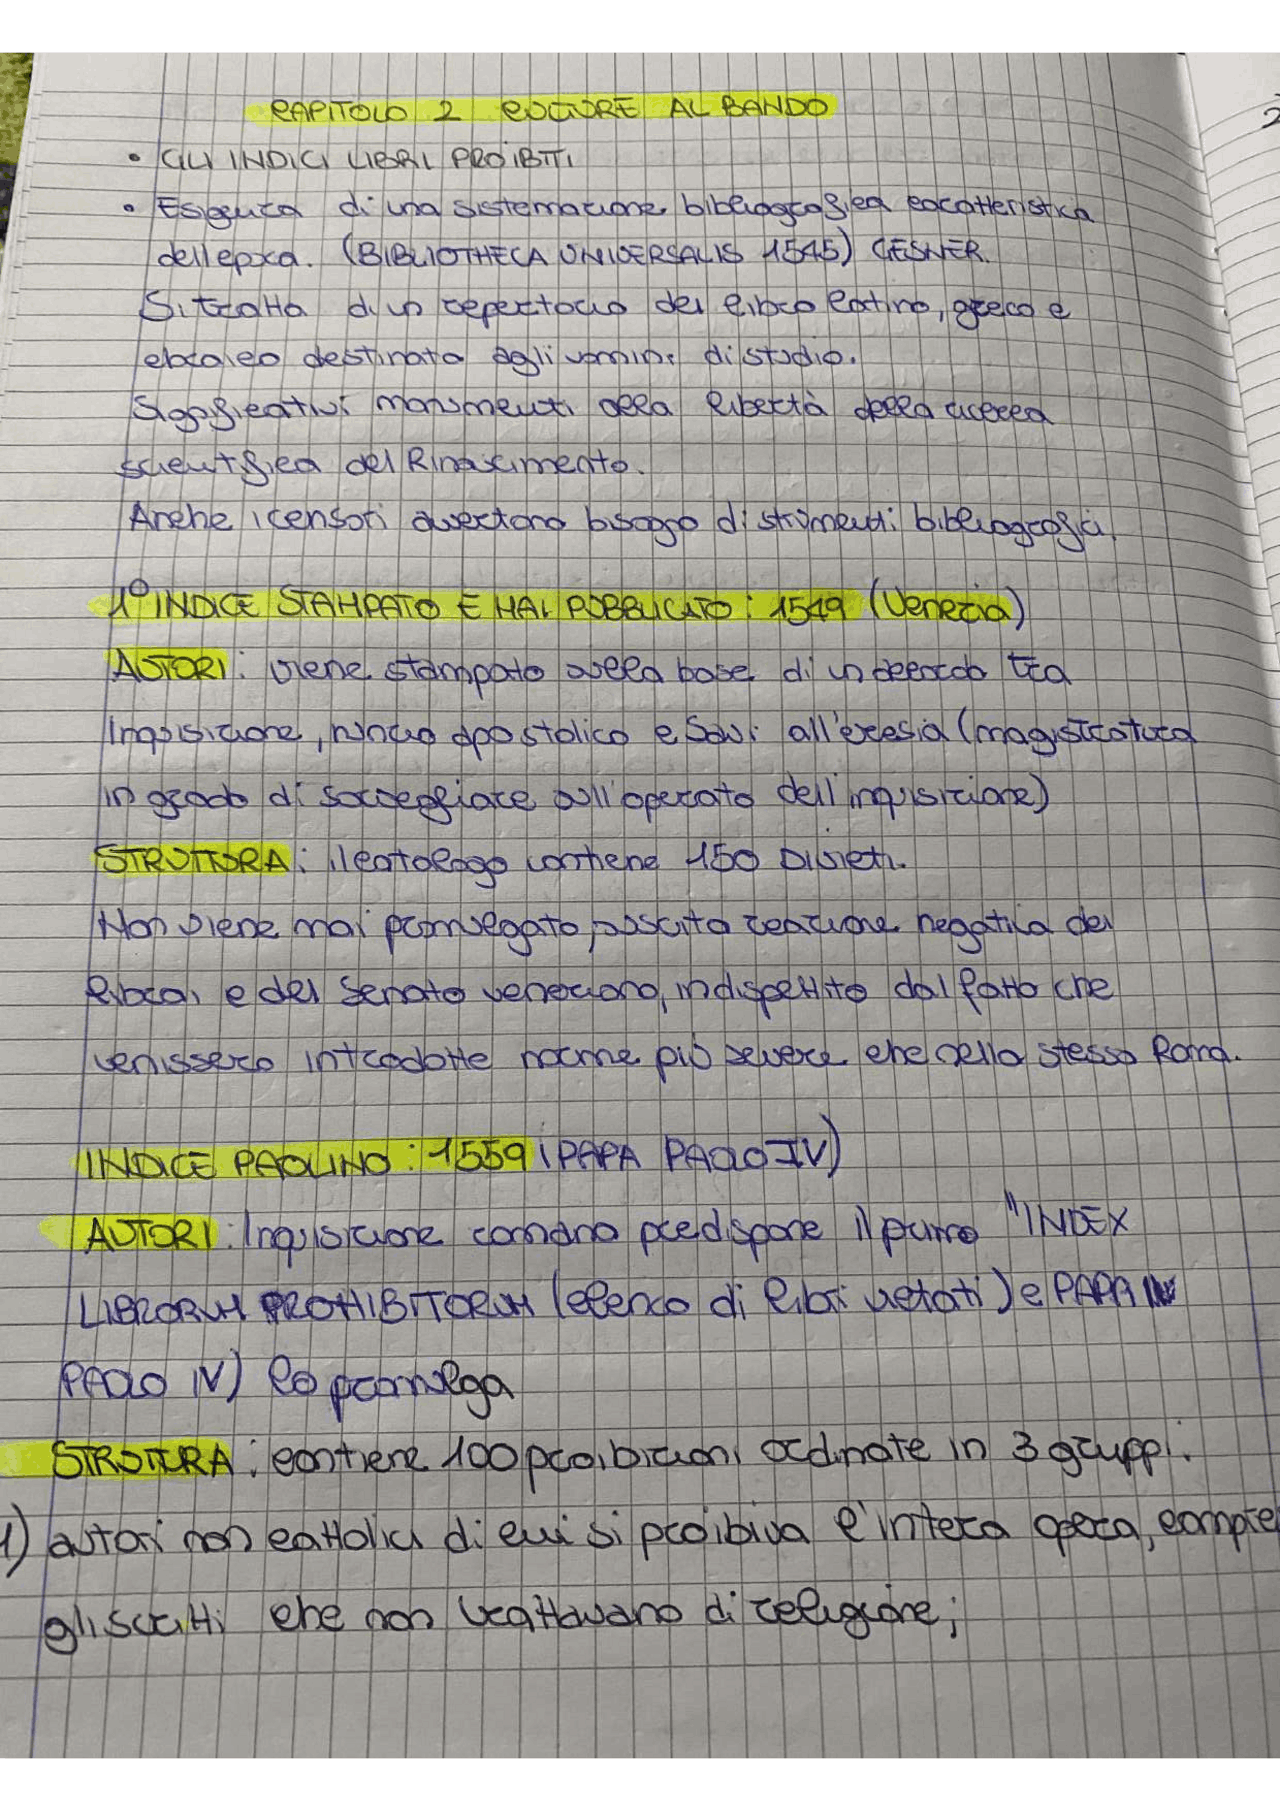 CAPITOLO 2 CULTURE AL BANDO
• GLI INDICI LIBRI PROIBITI
• Esigenza di una sistemazione bibliografica caratteristica
dell'epoca. (BIBLIOTHECA UNIVERSALIS 1545) GESNER.
Si tratta di un repertorio del libro latino, greco e
ebraico destinato agli uomini di studio.
Significativi monumenti della libertà della ricerca
scientifica del Rinascimento.
Anche i censori avertono bisogno di strumenti bibliografici.
1° INDICE STAMPATO E MAI PUBBLICATO: 1549 (Venezia)
AUTORI: viene stampato sulla base di un accordo tra
Inquisizione, nunzio apostolico e Savi all'eresia (magistratura
in grado di sorvegliare sull'operato dell'inquisizione)
STRUTTURA: il catalogo contiene 150 Divieti.
Non viene mai promulgato, suscita reazione negativa dei
librai e del Senato veneziano, indispettito dal fatto che
venissero introdotte norme più severe che nella stesso Roma.
INDICE PAOLINO: 1559 (PAPA PAOLO IV)
AUTORI: Inquisizione romana predispone il primo "INDEX
LIBRORUM PROHIBITORUM (elenco di libri vietati) e PAPA
PAOLO IV) lo promulga
STRUTTURA: contiene 100 proibizioni ordinate in 3 gruppi:
1) autori non cattolici di cui si proibiva l'intera opera, compre
gli scritti che non trattavano di religione;
2